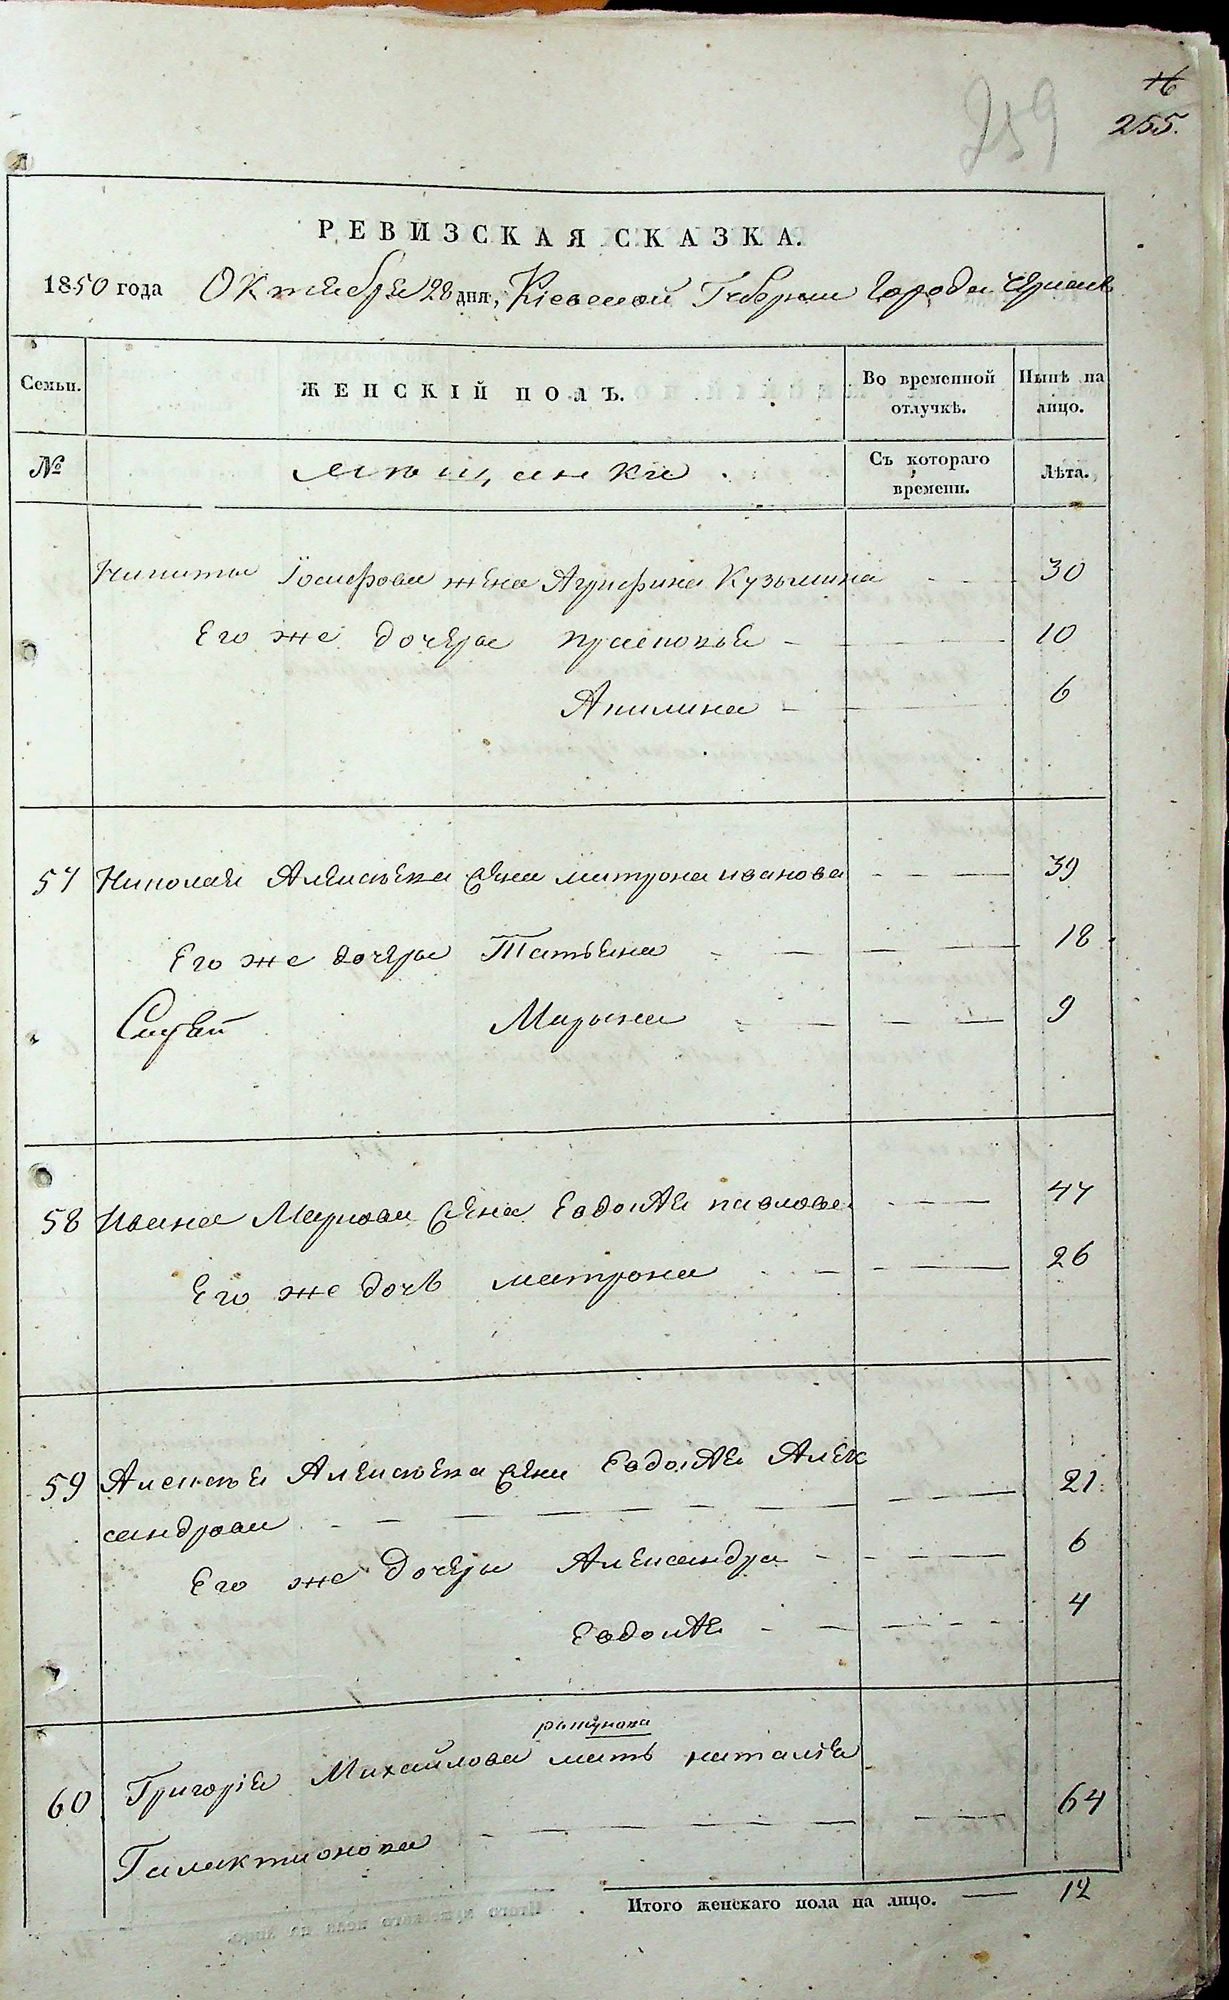 16
255.
259
РЕВИЗСКАЯ СКАЗКА.
1850 года Октября 28 дня, Кіевской Губерніи Города
Семьи. ЖЕНСКІЙ ПОЛЪ. Во временной отлучкѣ. Нынѣ на лицо.
№ мѣщанки Съ котораго времени. Лѣта.
Никиты Іосифова жена Агрифина Кузьмина 30
Его же дочери Прасковья 10
Акилина 6
57 Николая Алексѣева жена Матрона Иванова 39
Его же дочери Татьяна 18
Марьяна 9
58 Ивана Маркова жена Евдокія Павлова 47
Его же дочь Матрона 26
59 Алексѣя Алексѣева жена Евдокія Алек 21
сандрова
Его же дочери Александра 6
Евдокія 4
60 Григорія Михайлова мать Наталія 64
Галактионова
Итого женскаго пола на лицо. 12